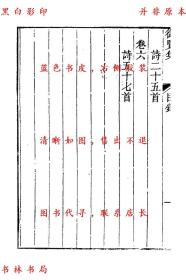 黑白影印
丹非原本
詩二十五首
卷六
詩五十七首
目錄
蓝色书皮，右侧线装
清晰如图，售出不退
图书代寻，联系店长
书林书局